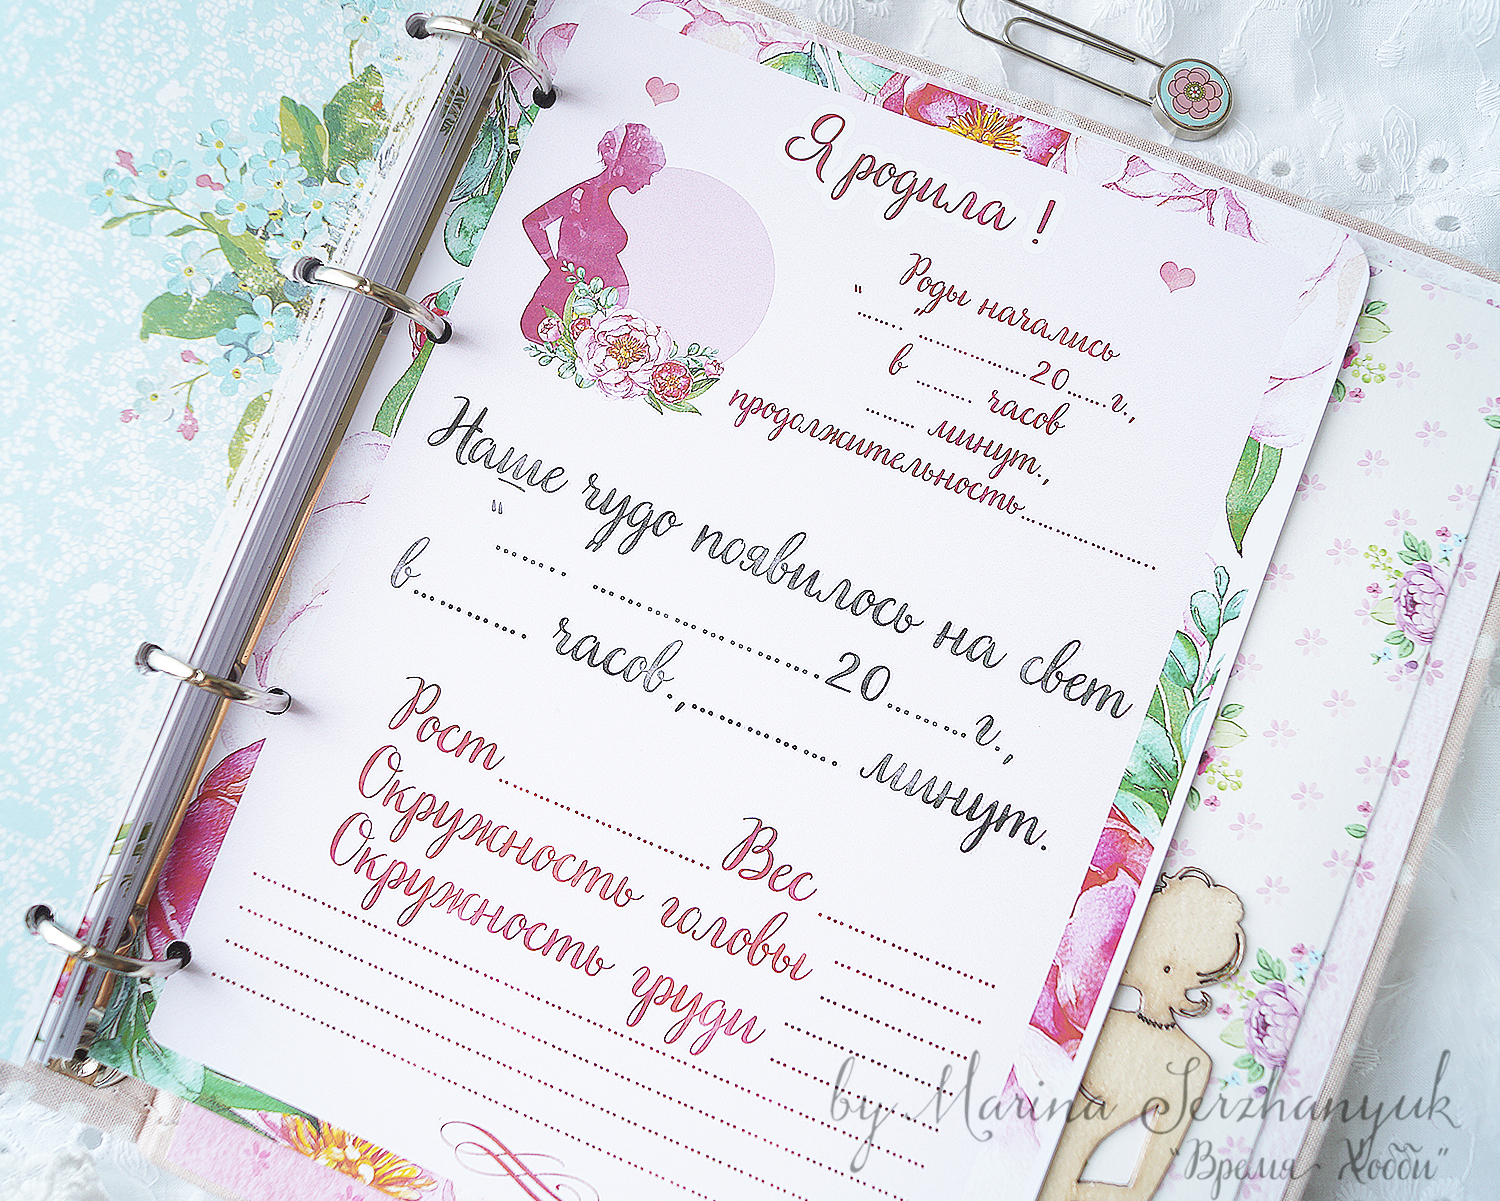 Я родила !
Роды начались
"......" ...............20.....г.,
в ....... часов
....... минут.,
продолжительность..................
Наше чудо появилось на свет
"......." ......................20........г.,
в........... часов.,............... минут.
Рост........................ Вес..................
Окружность головы ................
Окружность груди ................
by Marina Serzhanyuk
"Время - Хобби"